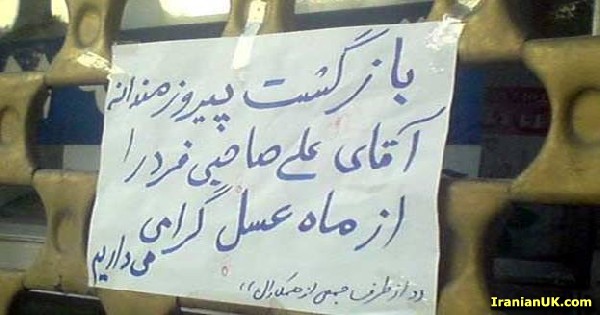 بازگشت پیروزمندانه
آقای علی صاحبی فرد را
از ماه عسل گرامی
می داریم
،، از طرف جمعی از همکاران ،،
IranianUK.com